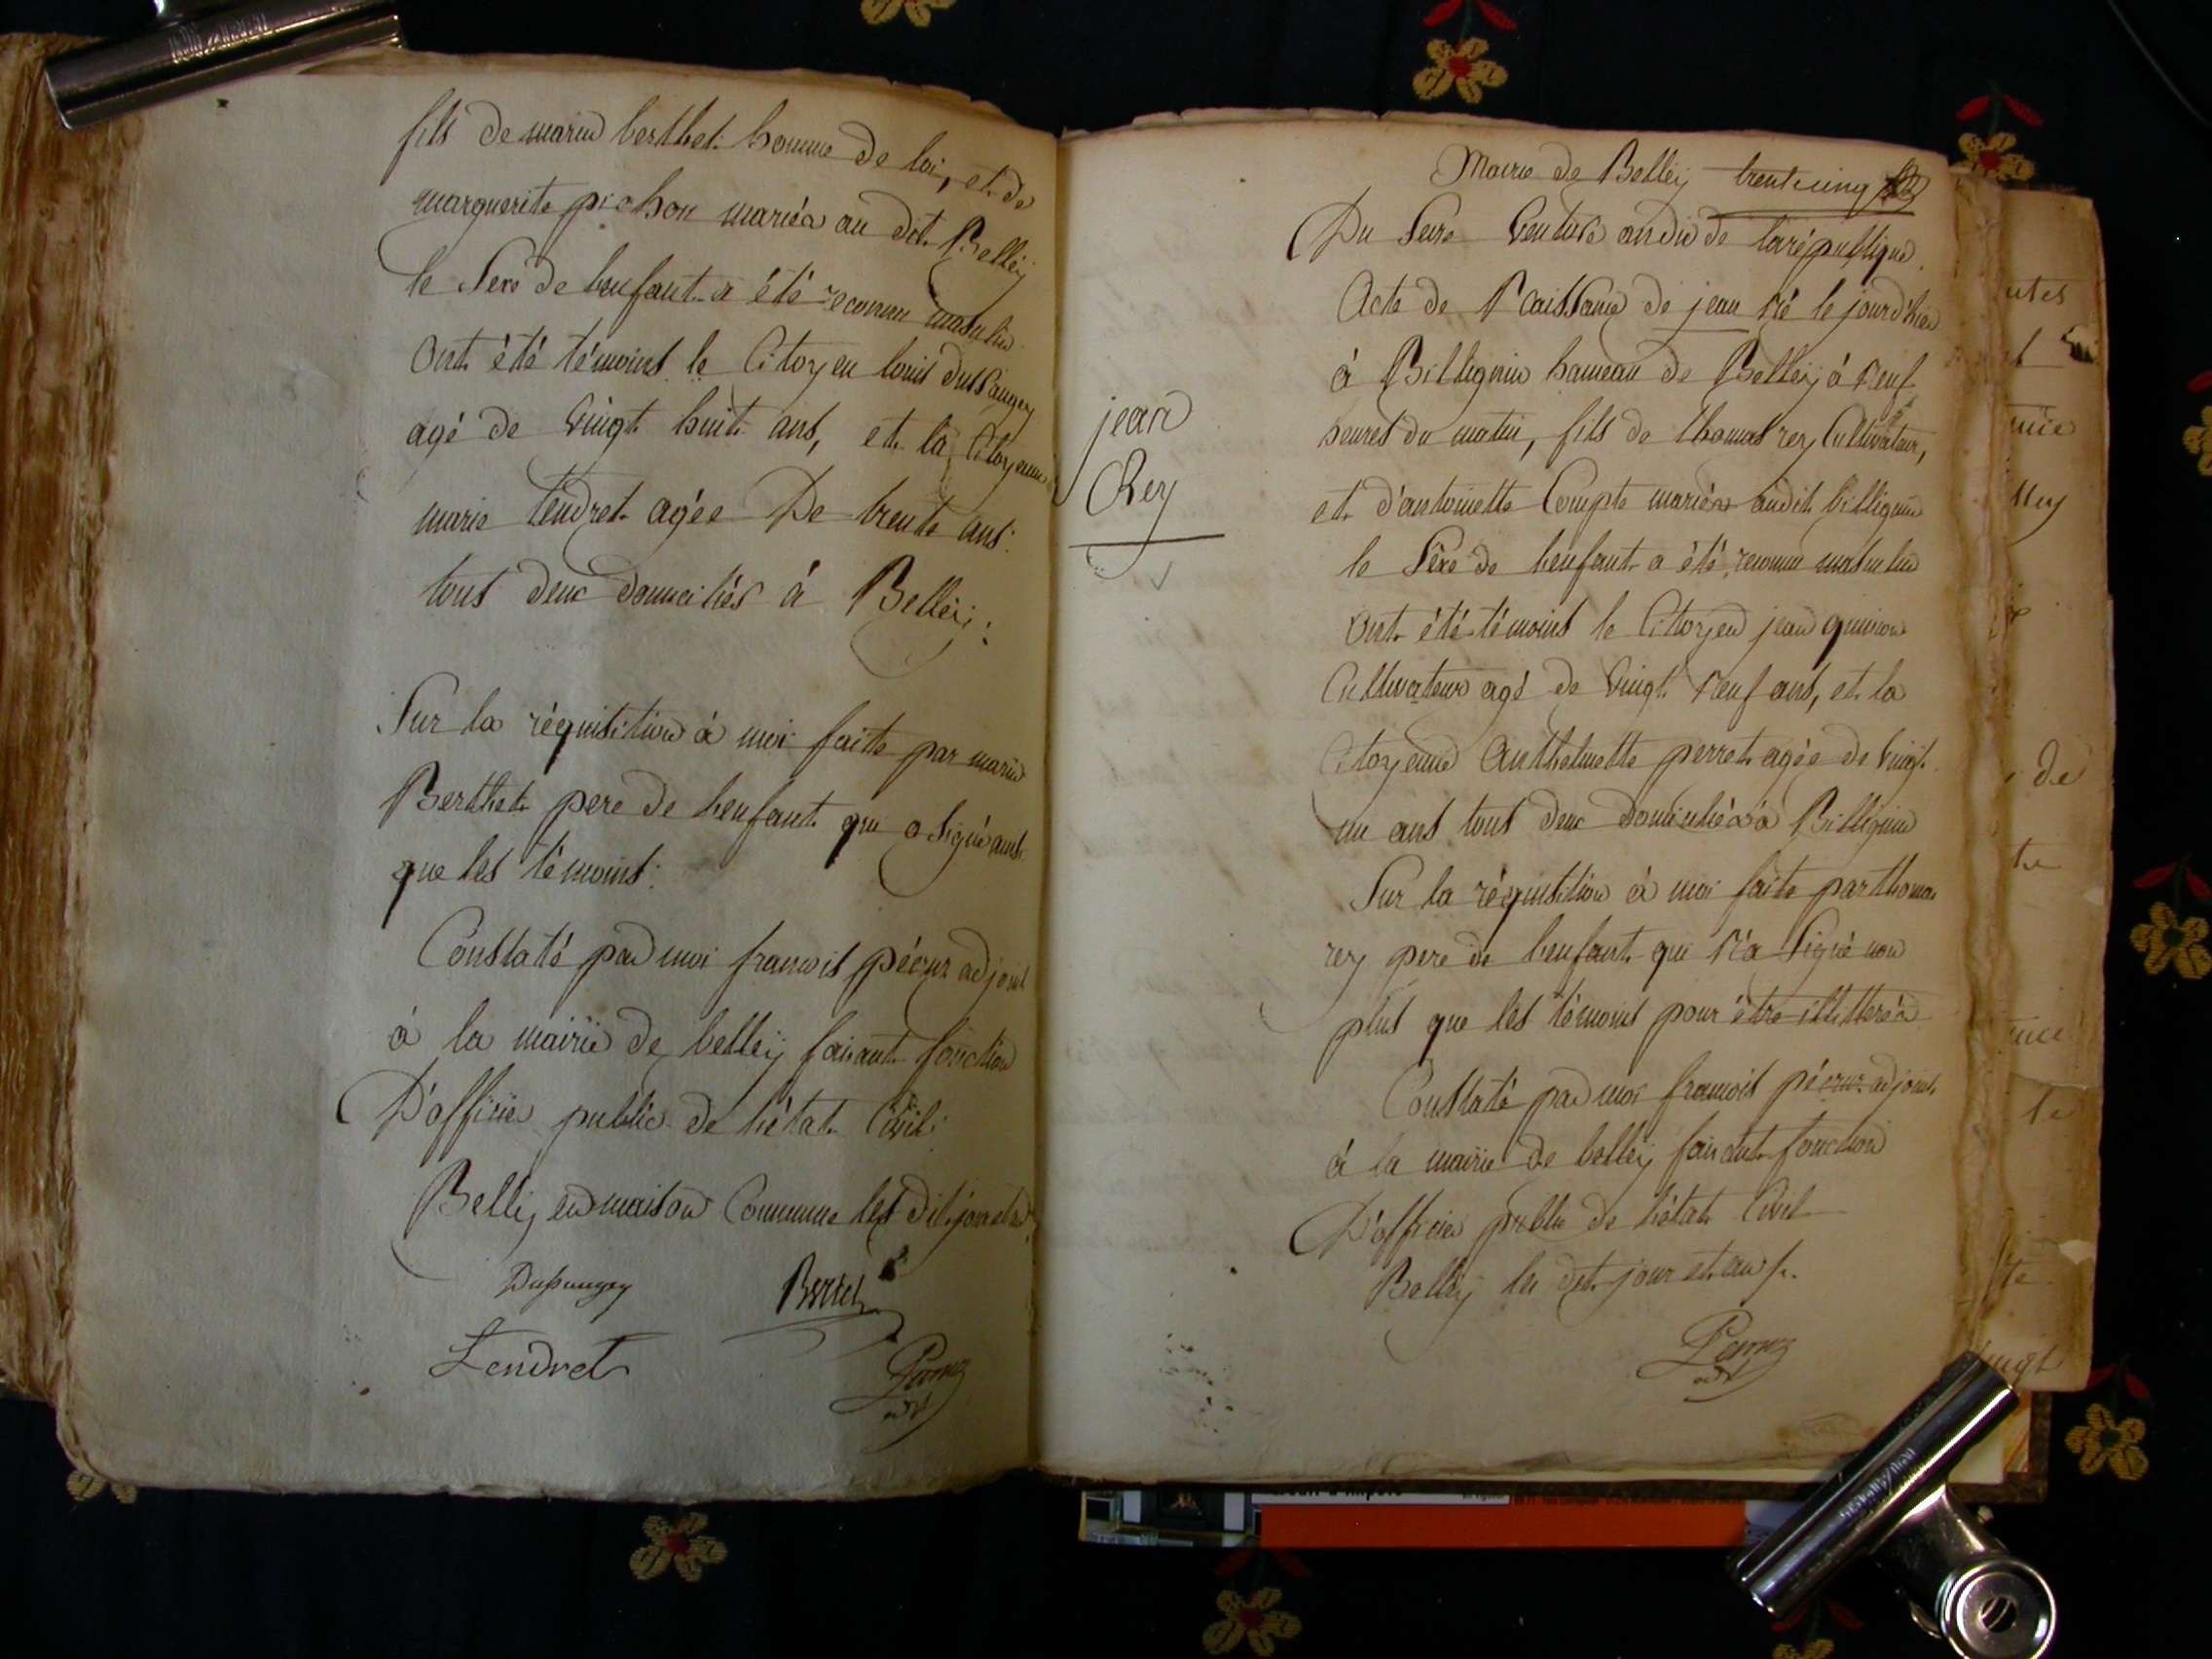 fils de marin berthet homme de loi, et de
marguerite pichon mariés au dit Belleÿ
le Sexe de l'enfant a été reconnu masculin
Ont été témoins le Citoyen louis dussaugey
agé de Vingt huit ans, et la Citoyenne
marie Tendret agée De trente ans
tous deux domiciliés à Belleÿ.
Sur la réquisition à moi faite par marin
Berthet pere de l'enfant qui a Signé ainsi
que les témoins.
Constaté par moi francois pécruz adjoint
à la mairie de belleÿ faisant fonction
D'officier public de l'état Civil
Belley en maison Commune les dit jour et an
Tendret
Mairie de Belleÿ trente cinq
Du Seize Ventose an dix de la république
Acte de Naissance de jean né le jour d'hier
à Billignin hameau de Belleÿ à neuf
heures du matin, fils de thomas rey Cultivateur,
et d'antoinette Compte mariés audit billignin
le Sexe de l'enfant a été reconnu masculin
Ont été témoins le Citoyen jean
Cultivateur agé de Vingt neuf ans, et la
Citoyenne Anthelmette perret agée de Vingt
un ans tous deux domiciliés à Billignin
Sur la réquisition à moi faite par thomas
rey pere de l'enfant qui n'a Signé non
plus que les témoins pour être illitterés
Constaté par moi francois pécruz adjoint
à la mairie de belleÿ faisant fonction
D'officier public de l'état Civil
Belleÿ les dit jour et an
jean
Rey
de
te